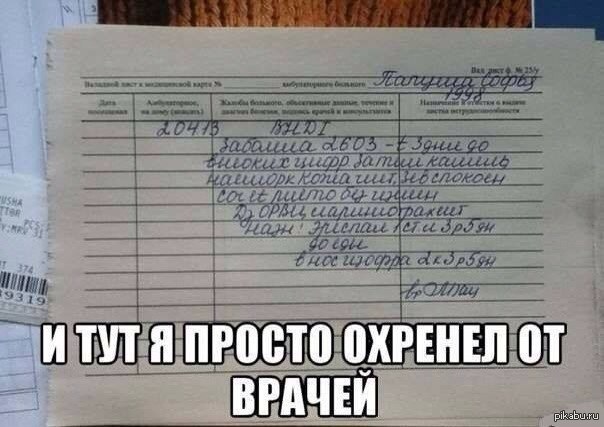 Вкл. лист ф. № 25/у
Вкладной лист к медицинской карте № амбулаторного больного Папуша Софья
1998
Дата посещения
Амбулаторное, на дому (вписать)
Жалобы больного, объективные данные, течение и диагноз болезни, подпись врача и консультанта
Назначение и отметки о выдаче листка нетрудоспособности
20413
Заболела 2603 - t 3 дня до
высоких цифр затем кашель
насморк зев спокоен
б/измен
Ds ОРВЦ ларинготрахеит
Назн: Эреспал 1 ст л 3р 5дн
до еды
в нос изофра 2к 3р 5дн
И ТУТ Я ПРОСТО ОХРЕНЕЛ ОТ
ВРАЧЕЙ
USHA
374
9319
pikabu.ru